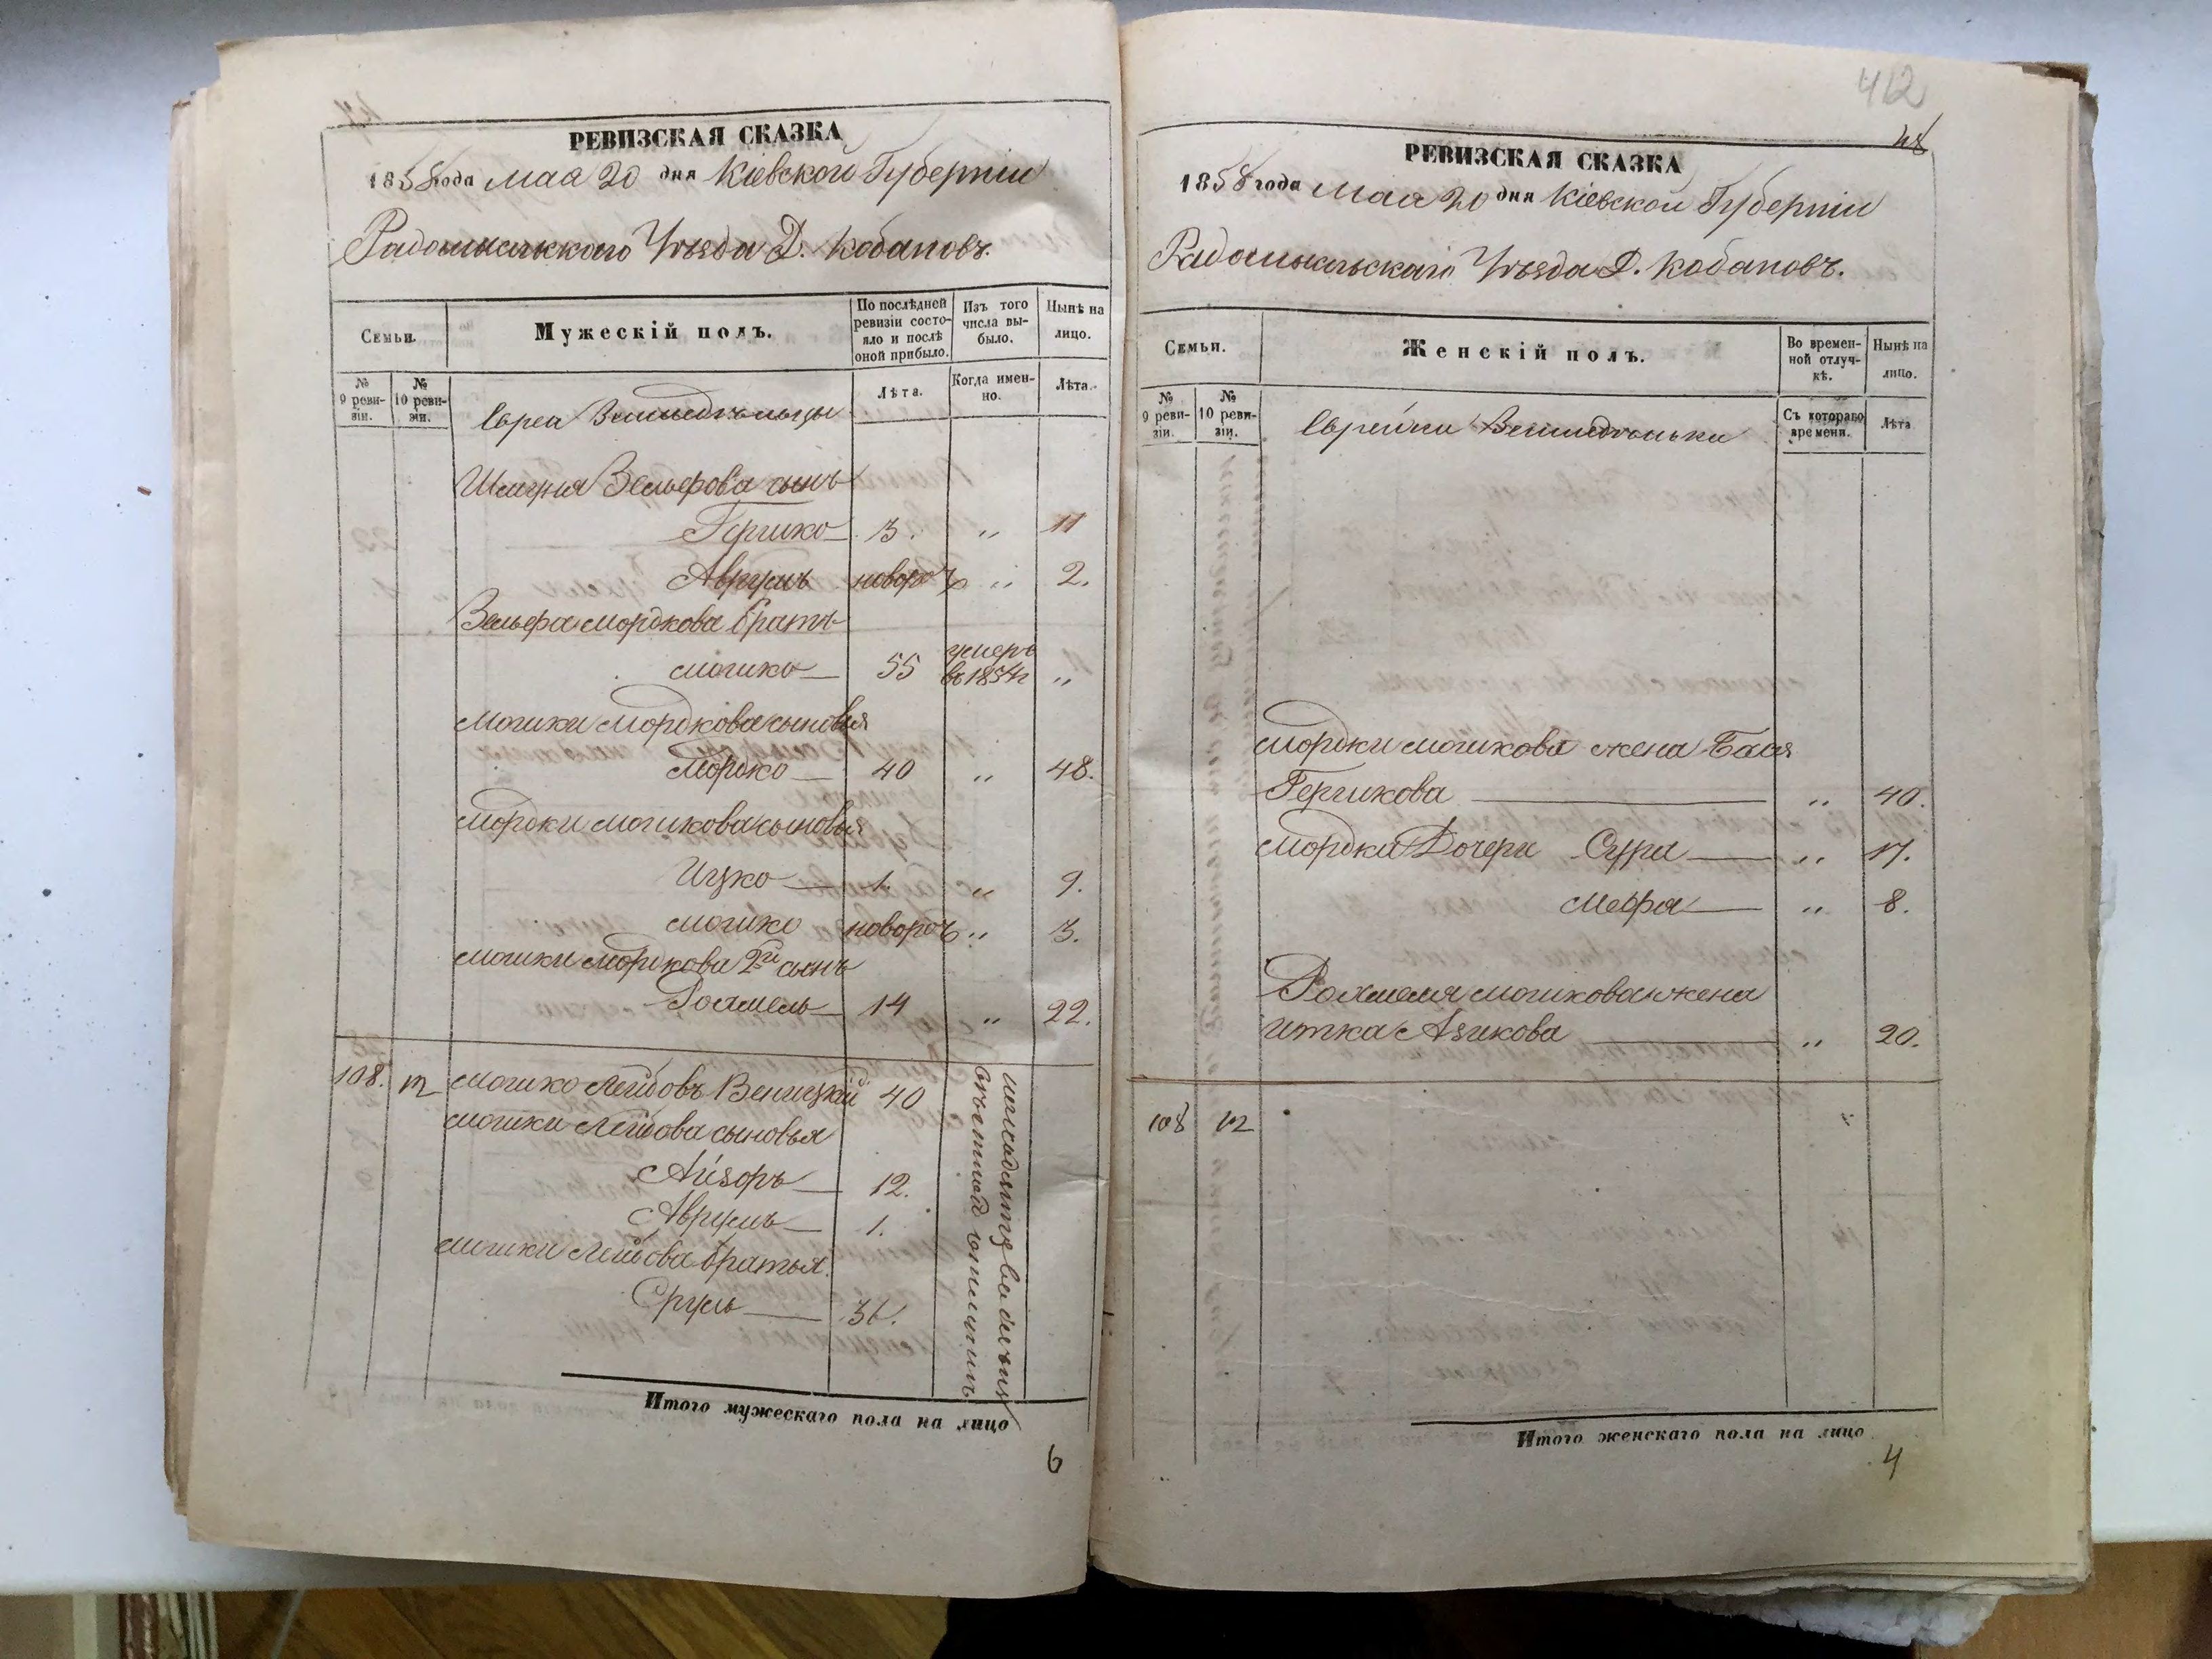 РЕВИЗСКАЯ СКАЗКА
1858 года Мая 20 дня Кіевской Губерніи
Радомысльского Уѣзда Д. Кобановъ.
Семьи.
Мужескій полъ.
По послѣдней ревизіи состояло и послѣ оной прибыло.
Изъ того числа выбыло.
Нынѣ на лицо.
№ 9 ревизіи.
№ 10 ревизіи.
Лѣта.
Когда именно.
Лѣта.
Евреи Земледѣльцы
Зельфова сынъ
Гершко 3. " 11
Аврумъ новорож " 2.
Зельфа Мордкова братъ
Мошко 55 умеръ въ 1854 г "
Мошки Мордкова сыновья
Мордко 40 " 48.
Мордки Мошкова сыновья
Ицко 1. " 9.
Мошко новорож " 3.
Мошки Мордкова 2й сынъ
Рахмель 14 " 22.
108. 12 Мошко Лейбовъ Веницкій 40
Мошки Лейбова сыновья
Айзоръ 12.
Аврумъ 1.
Мошки Лейбова братья
Сруль 36.
Итого мужескаго пола на лицо
6
412
48
РЕВИЗСКАЯ СКАЗКА
1858 года Мая 20 дня Кіевской Губерніи
Радомысльскаго Уѣзда Д. Кобановъ.
Семьи.
Женскій полъ.
Во временной отлучкѣ.
Нынѣ на лицо.
№ 9 ревизіи.
№ 10 ревизіи.
Съ котораго времени.
Лѣта
Еврейки Земледѣльки
Мордки Мошкова жена Бася
Гершкова " 40.
Мордки Дочери Сура " 17.
" 8.
Рахмеля Мошкова жена
Итка Азикова " 20.
108 12 "
Итого женскаго пола на лицо
4